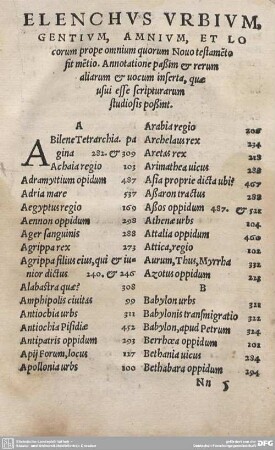 ELENCHVS VRBIVM,
GENTIVM, AMNIVM, ET LO
corum prope omnium quorum Nouo testamēto
fit mētio. Annotatione paßim & rerum
aliarum & uocum inserta, quæ
usui esse scripturarum
studiosis poßint.
A
ABilene Tetrarchia. pa
gina 282. & 309
Achaia regio 103
Adramyttium opidum 487
Adria mare 537
Aegyptus regio 160
Aennon oppidum 298
Ager sanguinis 288
Agrippa rex 273
Agrippa filius eius, qui & iu
nior dictus 240. & 246
Alabastra quæ? 308
Amphipolis ciuitas 99
Antiochia urbs 311
Antiochia Pisidiæ 452
Antipatris oppidum 293
Apij Forum, locus 127
Apollonia urbs 100
Arabia regio
Archelaus rex 234
Aretas rex 218
Arimathea uicus 288
Asia proprie dicta ubi? 467
Assaron tractus 288
Aßos oppidum 487. & 521
Athenæ urbs 104
Attalia oppidum 466
Attica, regio 102
Aurum, Thus, Myrrha 331
Azotus oppidum 213
B
Babylon urbs 321
Babylonis transmigratio
Babylon, apud Petrum 324
Berrhœa oppidum 101
Bethania uicus 284
Bethabara oppidum 294
Nn 5